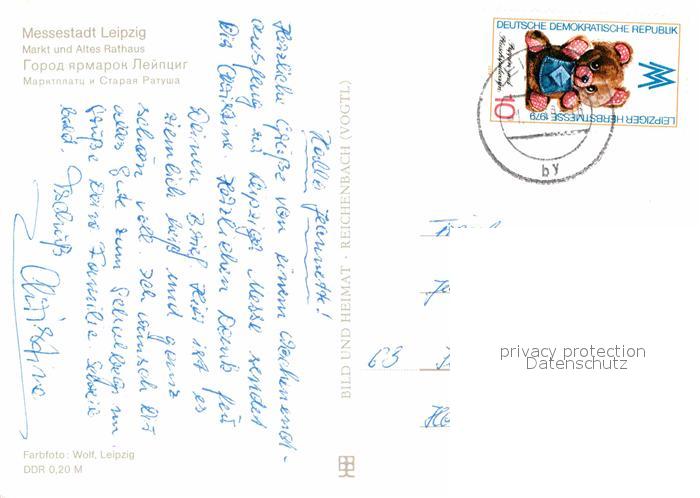 Messestadt Leipzig
Markt und Altes Rathaus
Город ярмарок Лейпциг
Марктплатц и Старая Ратуша
Hallo Jeannett!
Herzliche Grüße von einem Wochenend-
ausflug zur Leipziger Messe sendet
Dir Christine. Herzlichen Dank für
Deinen Brief. Hier ist es
ziemlich heiß und ganz
schön voll. Ich wünsch Dir
alles Gute zum Schulbeginn.
Grüße Deine Familie. Schreib
bald. Tschüß
Christine
Farbfoto: Wolf, Leipzig
DDR 0,20 M
BILD UND HEIMAT · REICHENBACH (VOGTL)
DEUTSCHE DEMOKRATISCHE REPUBLIK
LEIPZIGER HERBSTMESSE 1979
10
by
63
privacy protection
Datenschutz